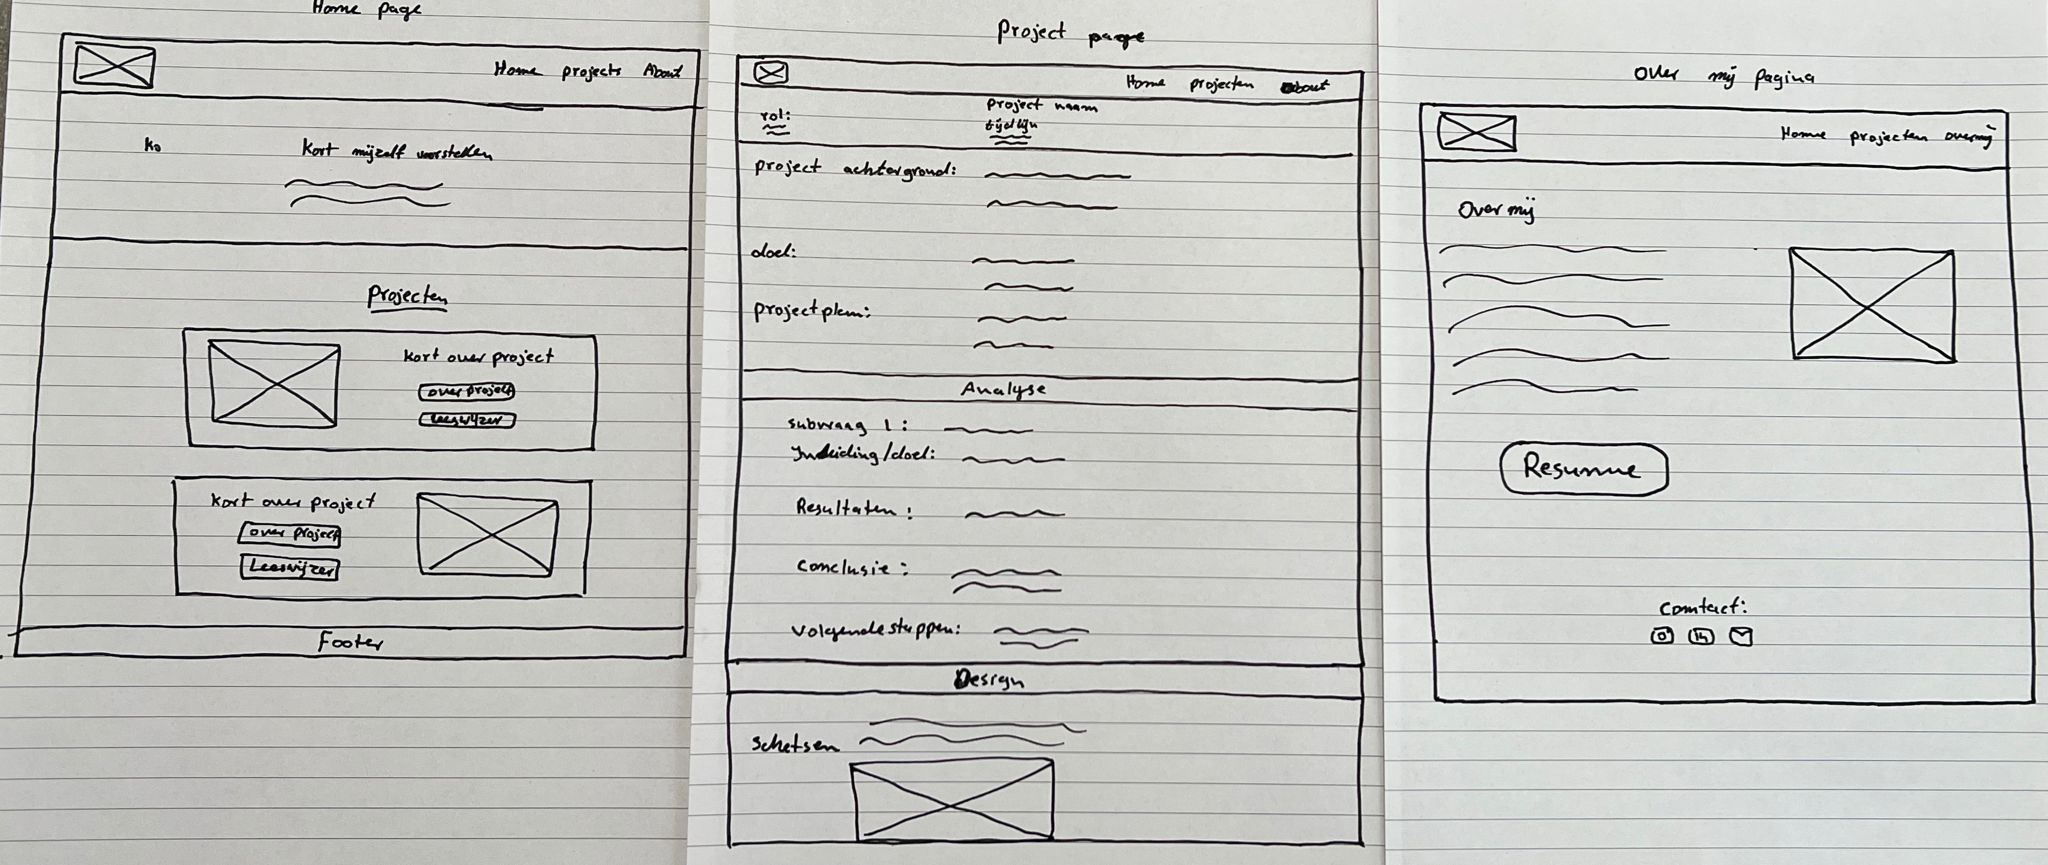 Home page
Home projects About
Ko
Kort mijzelf voorstellen
Projecten
Kort over project
over project
Leeswijzer
Kort over project
over project
Leeswijzer
Footer
Project page
Home projecten about
rol:
project naam
tijdlijn
project achtergrond:
doel:
projectplan:
Analyse
subvraag 1:
Inleiding/doel:
Resultaten:
Conclusie:
Volgende stappen:
Design
Schetsen
Over mij pagina
Home projecten over mij
Over mij
Resumue
Contact:
in